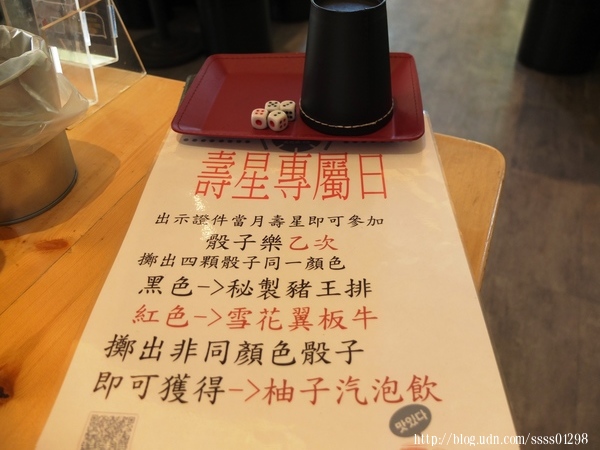 壽星專屬日
出示證件當月壽星即可參加
骰子樂乙次
擲出四顆骰子同一顏色
黑色->秘製豬王排
紅色->雪花翼板牛
擲出非同顏色骰子
即可獲得->柚子汽泡飲
맛있다
http://blog.udn.com/ssss01298